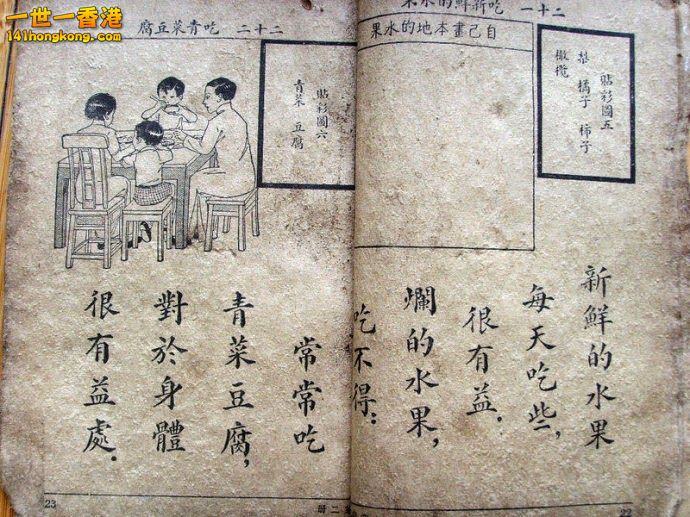 一世一香港
141hongkong.com
二十一 吃新鮮的水果
貼彩圖五
梨 橘子 柿子
橄欖
自己畫本地的水果
新鮮的水果
每天吃些,
很有益.
爛的水果,
吃不得;
22
二十二 吃青菜豆腐
貼彩圖六
青菜 豆腐
常常吃
青菜豆腐,
對於身體
很有益處.
二冊
23